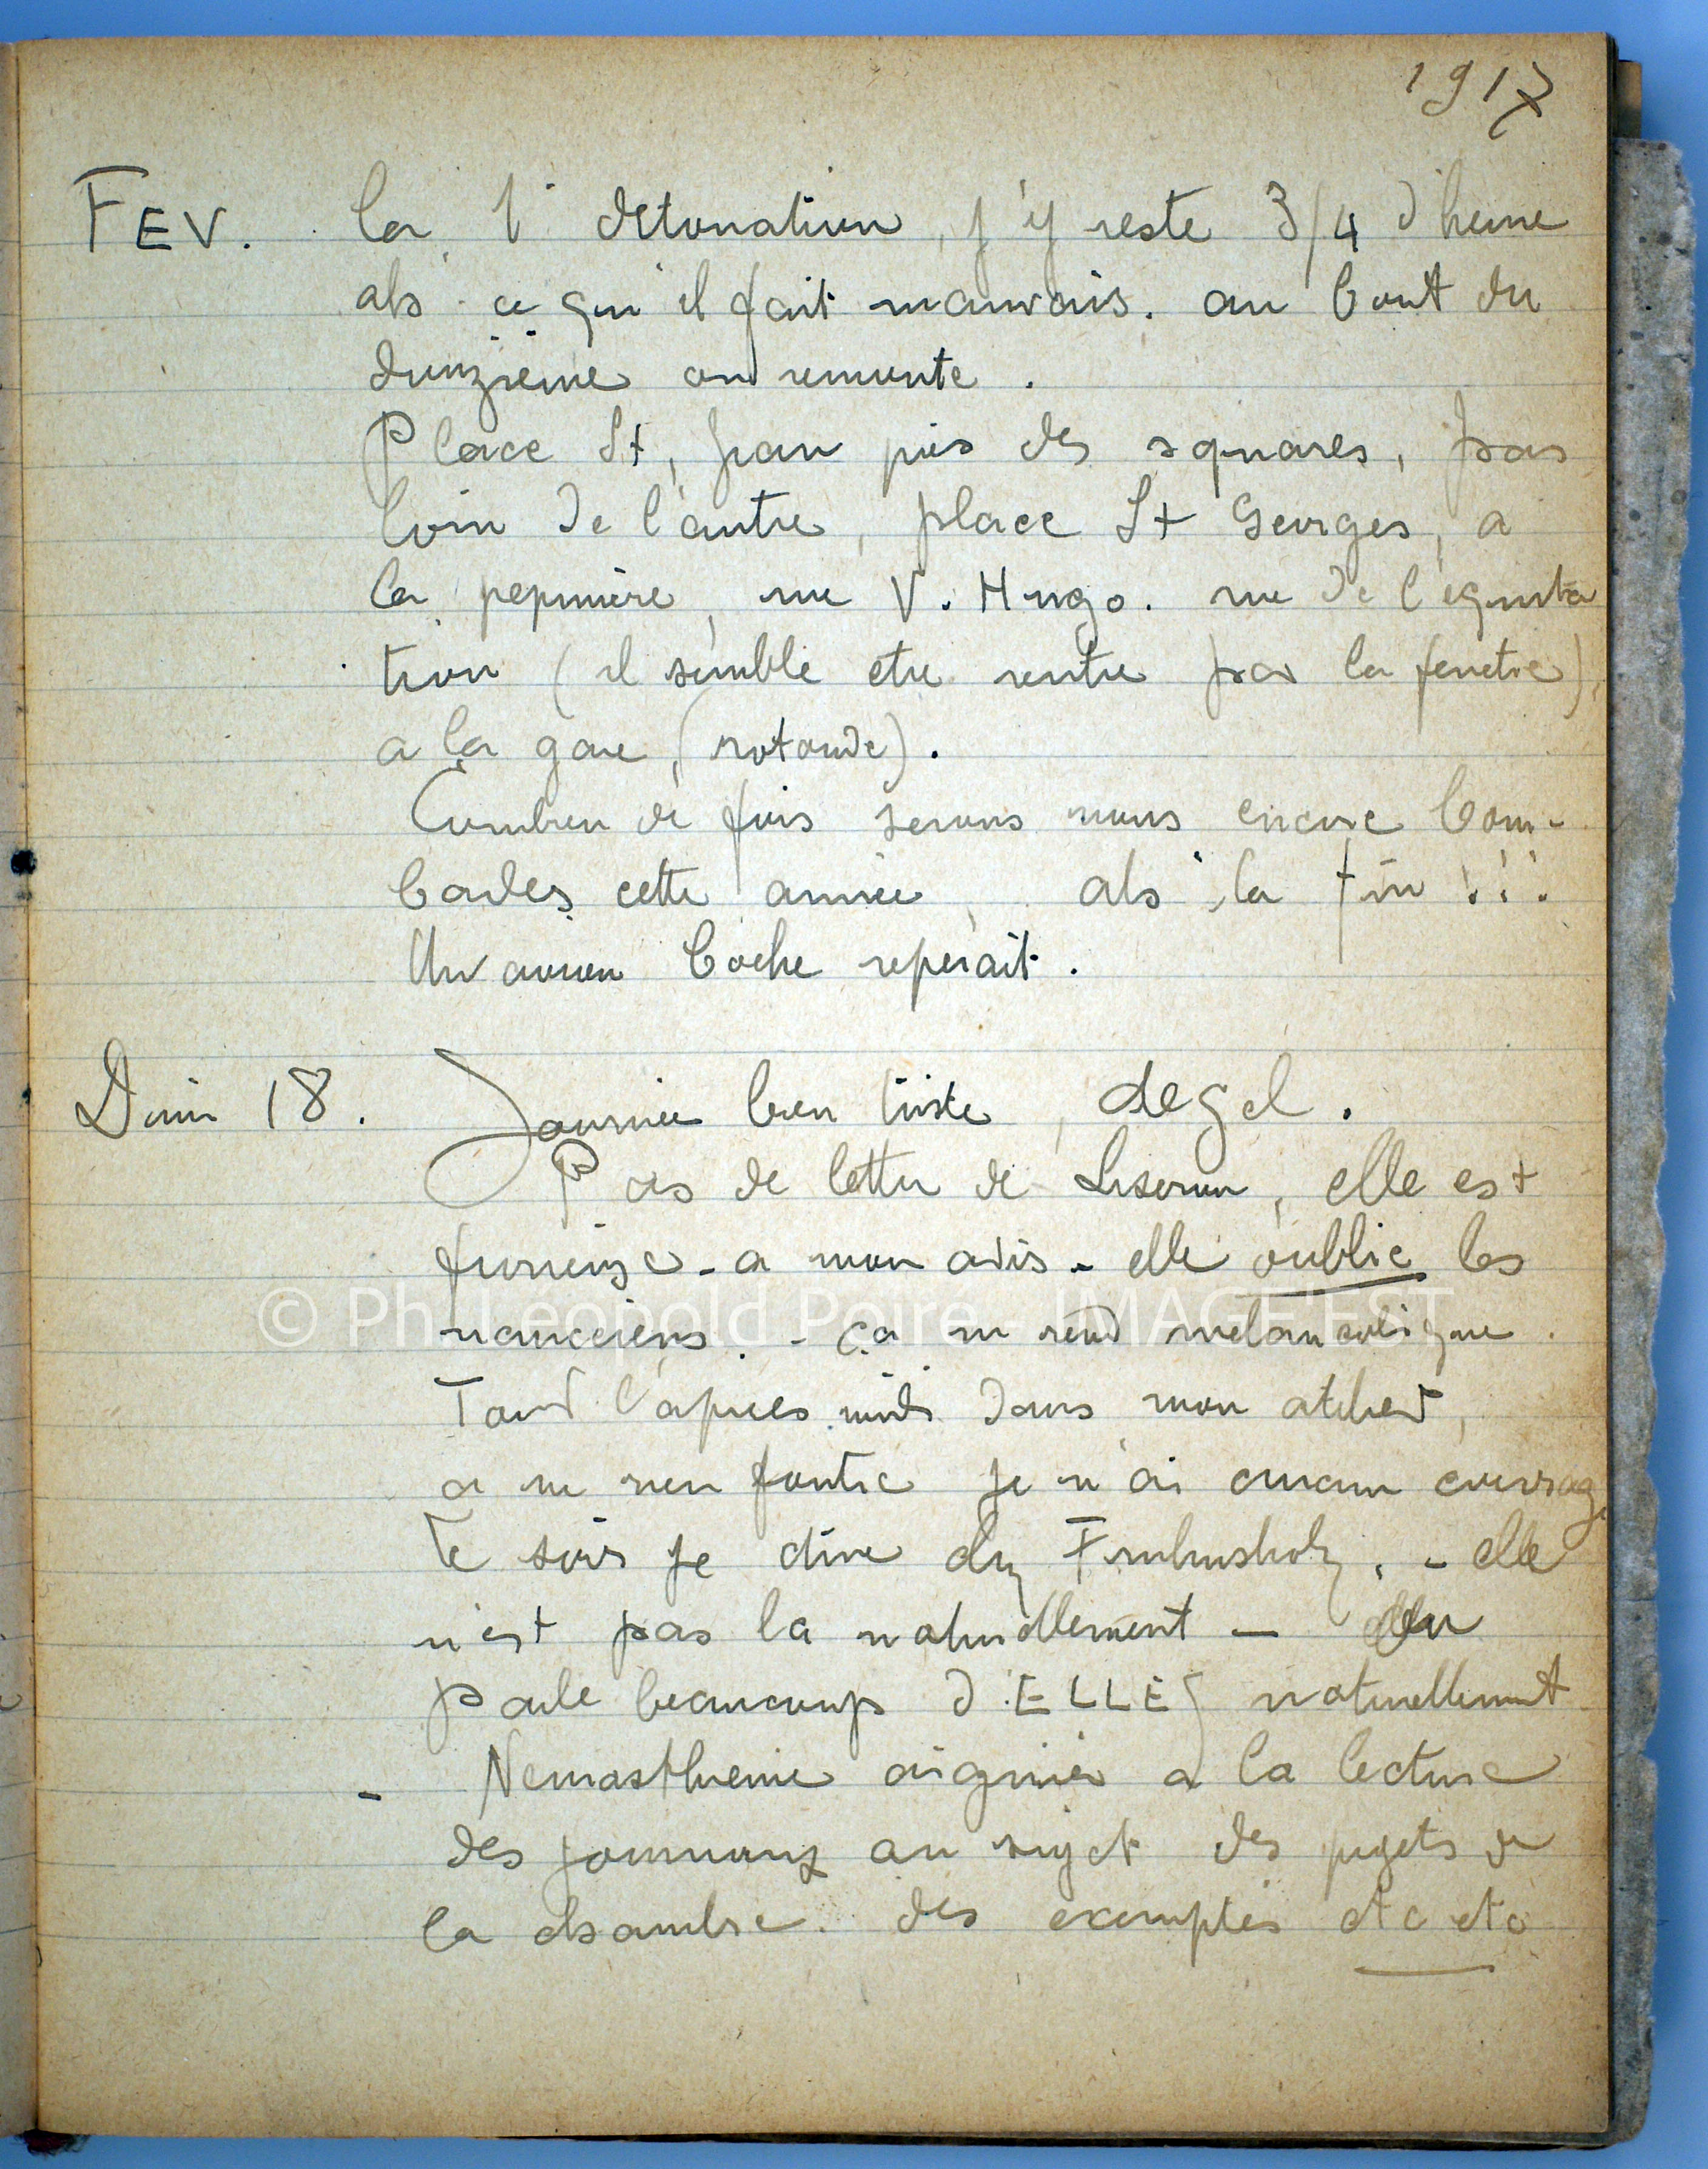 1917
FEV. la 1e detonation, j'y reste 3/4 d'heure
als ce qu'il fait mauvais. au bout du
douzième on remonte.
Place St, Jean pres des squares, pas
loin de l'autre, place St Georges, a
la pepinière, rue V. Hugo. rue de l'equita
tion (il semble etre rentre par la fenetre),
a la gare, (rotonde).
Combien de fois serons nous encore bom-
bardes cette année, als la fin !!!
Un avion boche reperait.
Dim 18. Journée bien triste, degel.
Pas de lettre de Liseron, elle est
furieuse - a mon avis - elle oublie les
nanceiens. - ça me rend melancolique.
Tout l'après midi dans mon atelier,
a ne rien foutre je n'ai aucun courage
Le soir je dine chz Fruhinsholz. - elle
n'est pas la naturellement -
parle beaucoup d'ELLES naturellement
- Neurasthenie aigrie a la lecture
des journaux au sujet des projets de
la chambre. des exemptés etc etc
© Ph. Léopold Poiré - IMAGE'EST